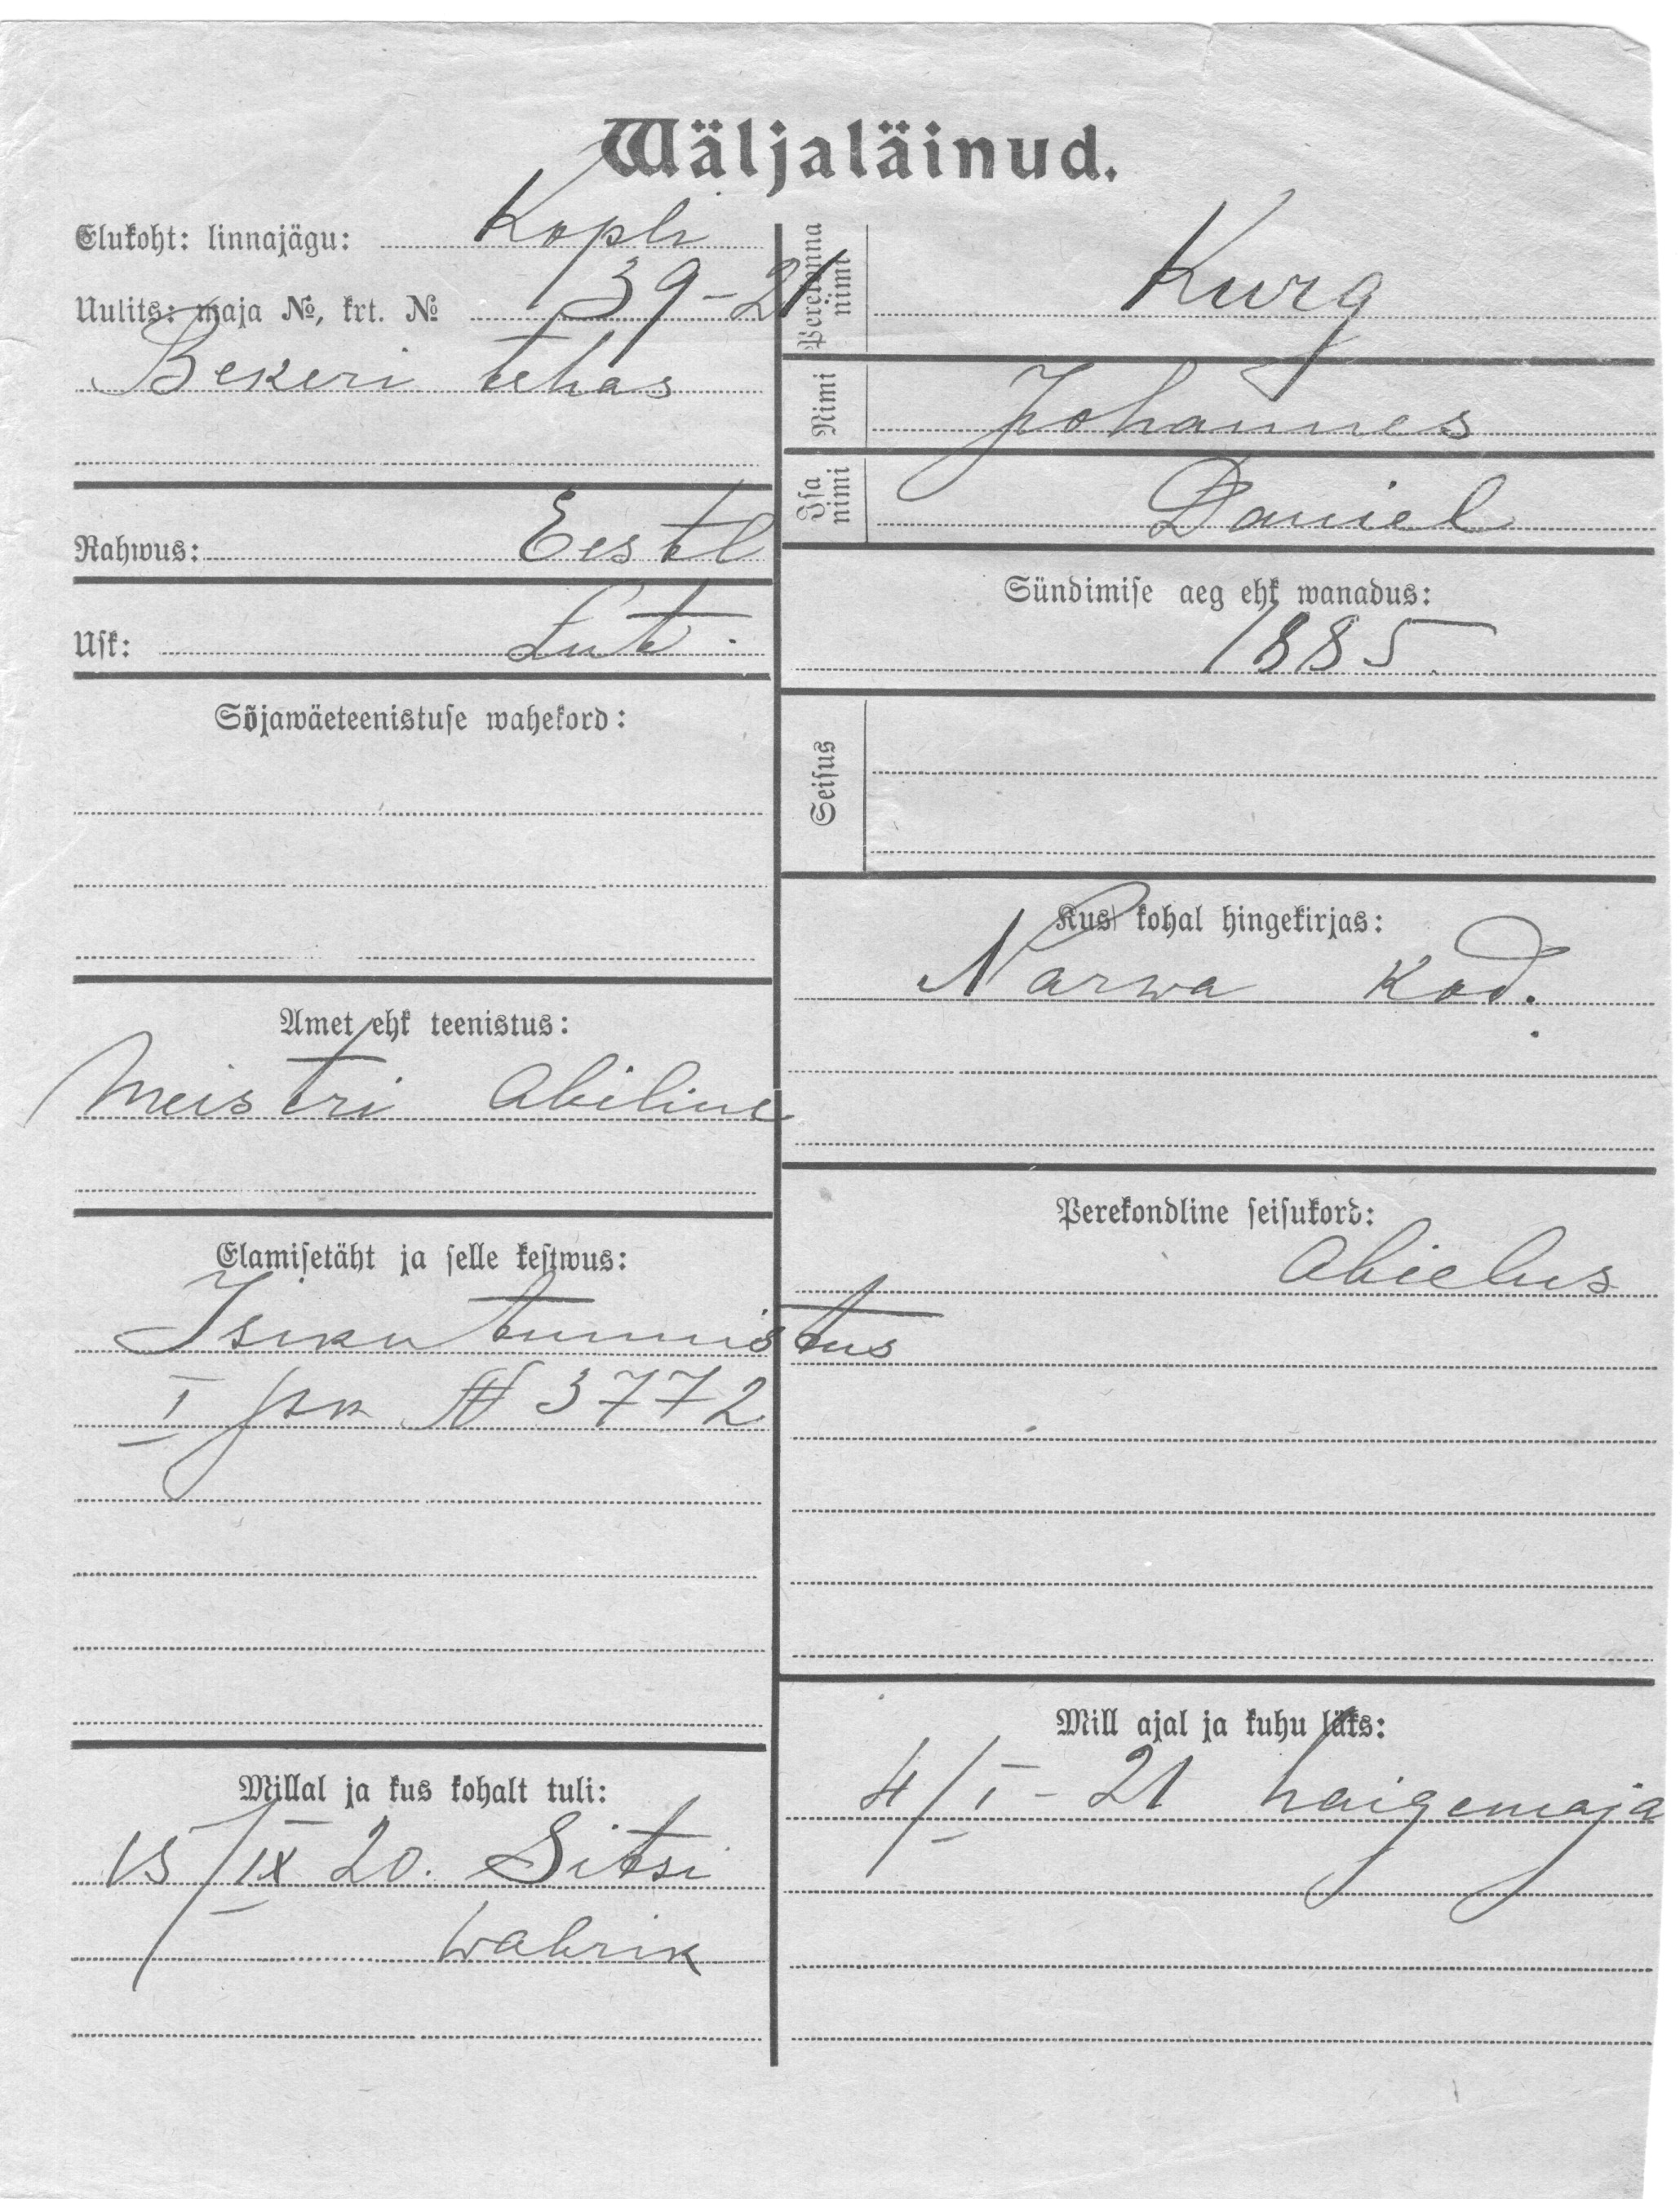 Wäljaläinud.
Elukoht: linnajägu: Kopli
Uulits: maja №, krt. № 39-21
Bekeri tehas
Rahwus: Eestl
Usk: Lut.
Sõjawäeteenistuse wahekord:
Amet ehk teenistus:
Meistri abiline
Elamisetäht ja selle kestwus:
Isiku tunnistus
I jsk № 3772
Millal ja kus kohalt tuli:
15/IX 20. Sitsi
wabrik
Perekonna nimi
Kurg
Nimi
Johannes
Isa nimi
Daniel
Sündimise aeg ehk wanadus:
1885
Seisus
Kus kohal hingekirjas:
Narwa kod.
Perekondline seisukord:
Abielus
Mill ajal ja kuhu läks:
4/I - 21 haigemaja